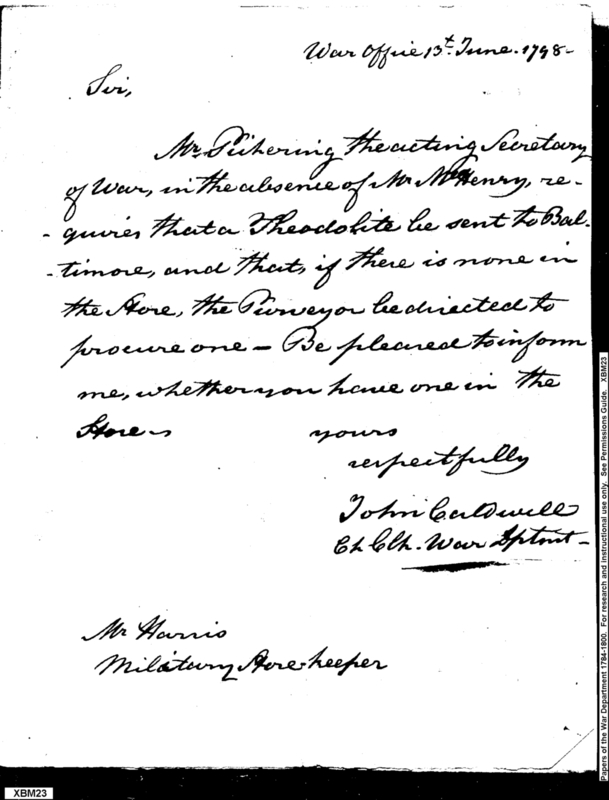 War Office 13t June. 1798-
Sir,
Mr. Pickering the acting Secretary
of War, in the absence of Mr McHenry, re-
-quires that a Theodolite be sent to Bal-
-timore, and that, if there is none in
the Store, the Purveyor be directed to
procure one - Be pleased to inform
me, whether you have one in the
Store -
yours
respectfully
John Caldwell
Ch Clk. War Dptmt -
Mr Harris
Military Store-keeper
Papers of the War Department 1784-1800. For research and instructional use only. See Permissions Guide. XBM23
XBM23